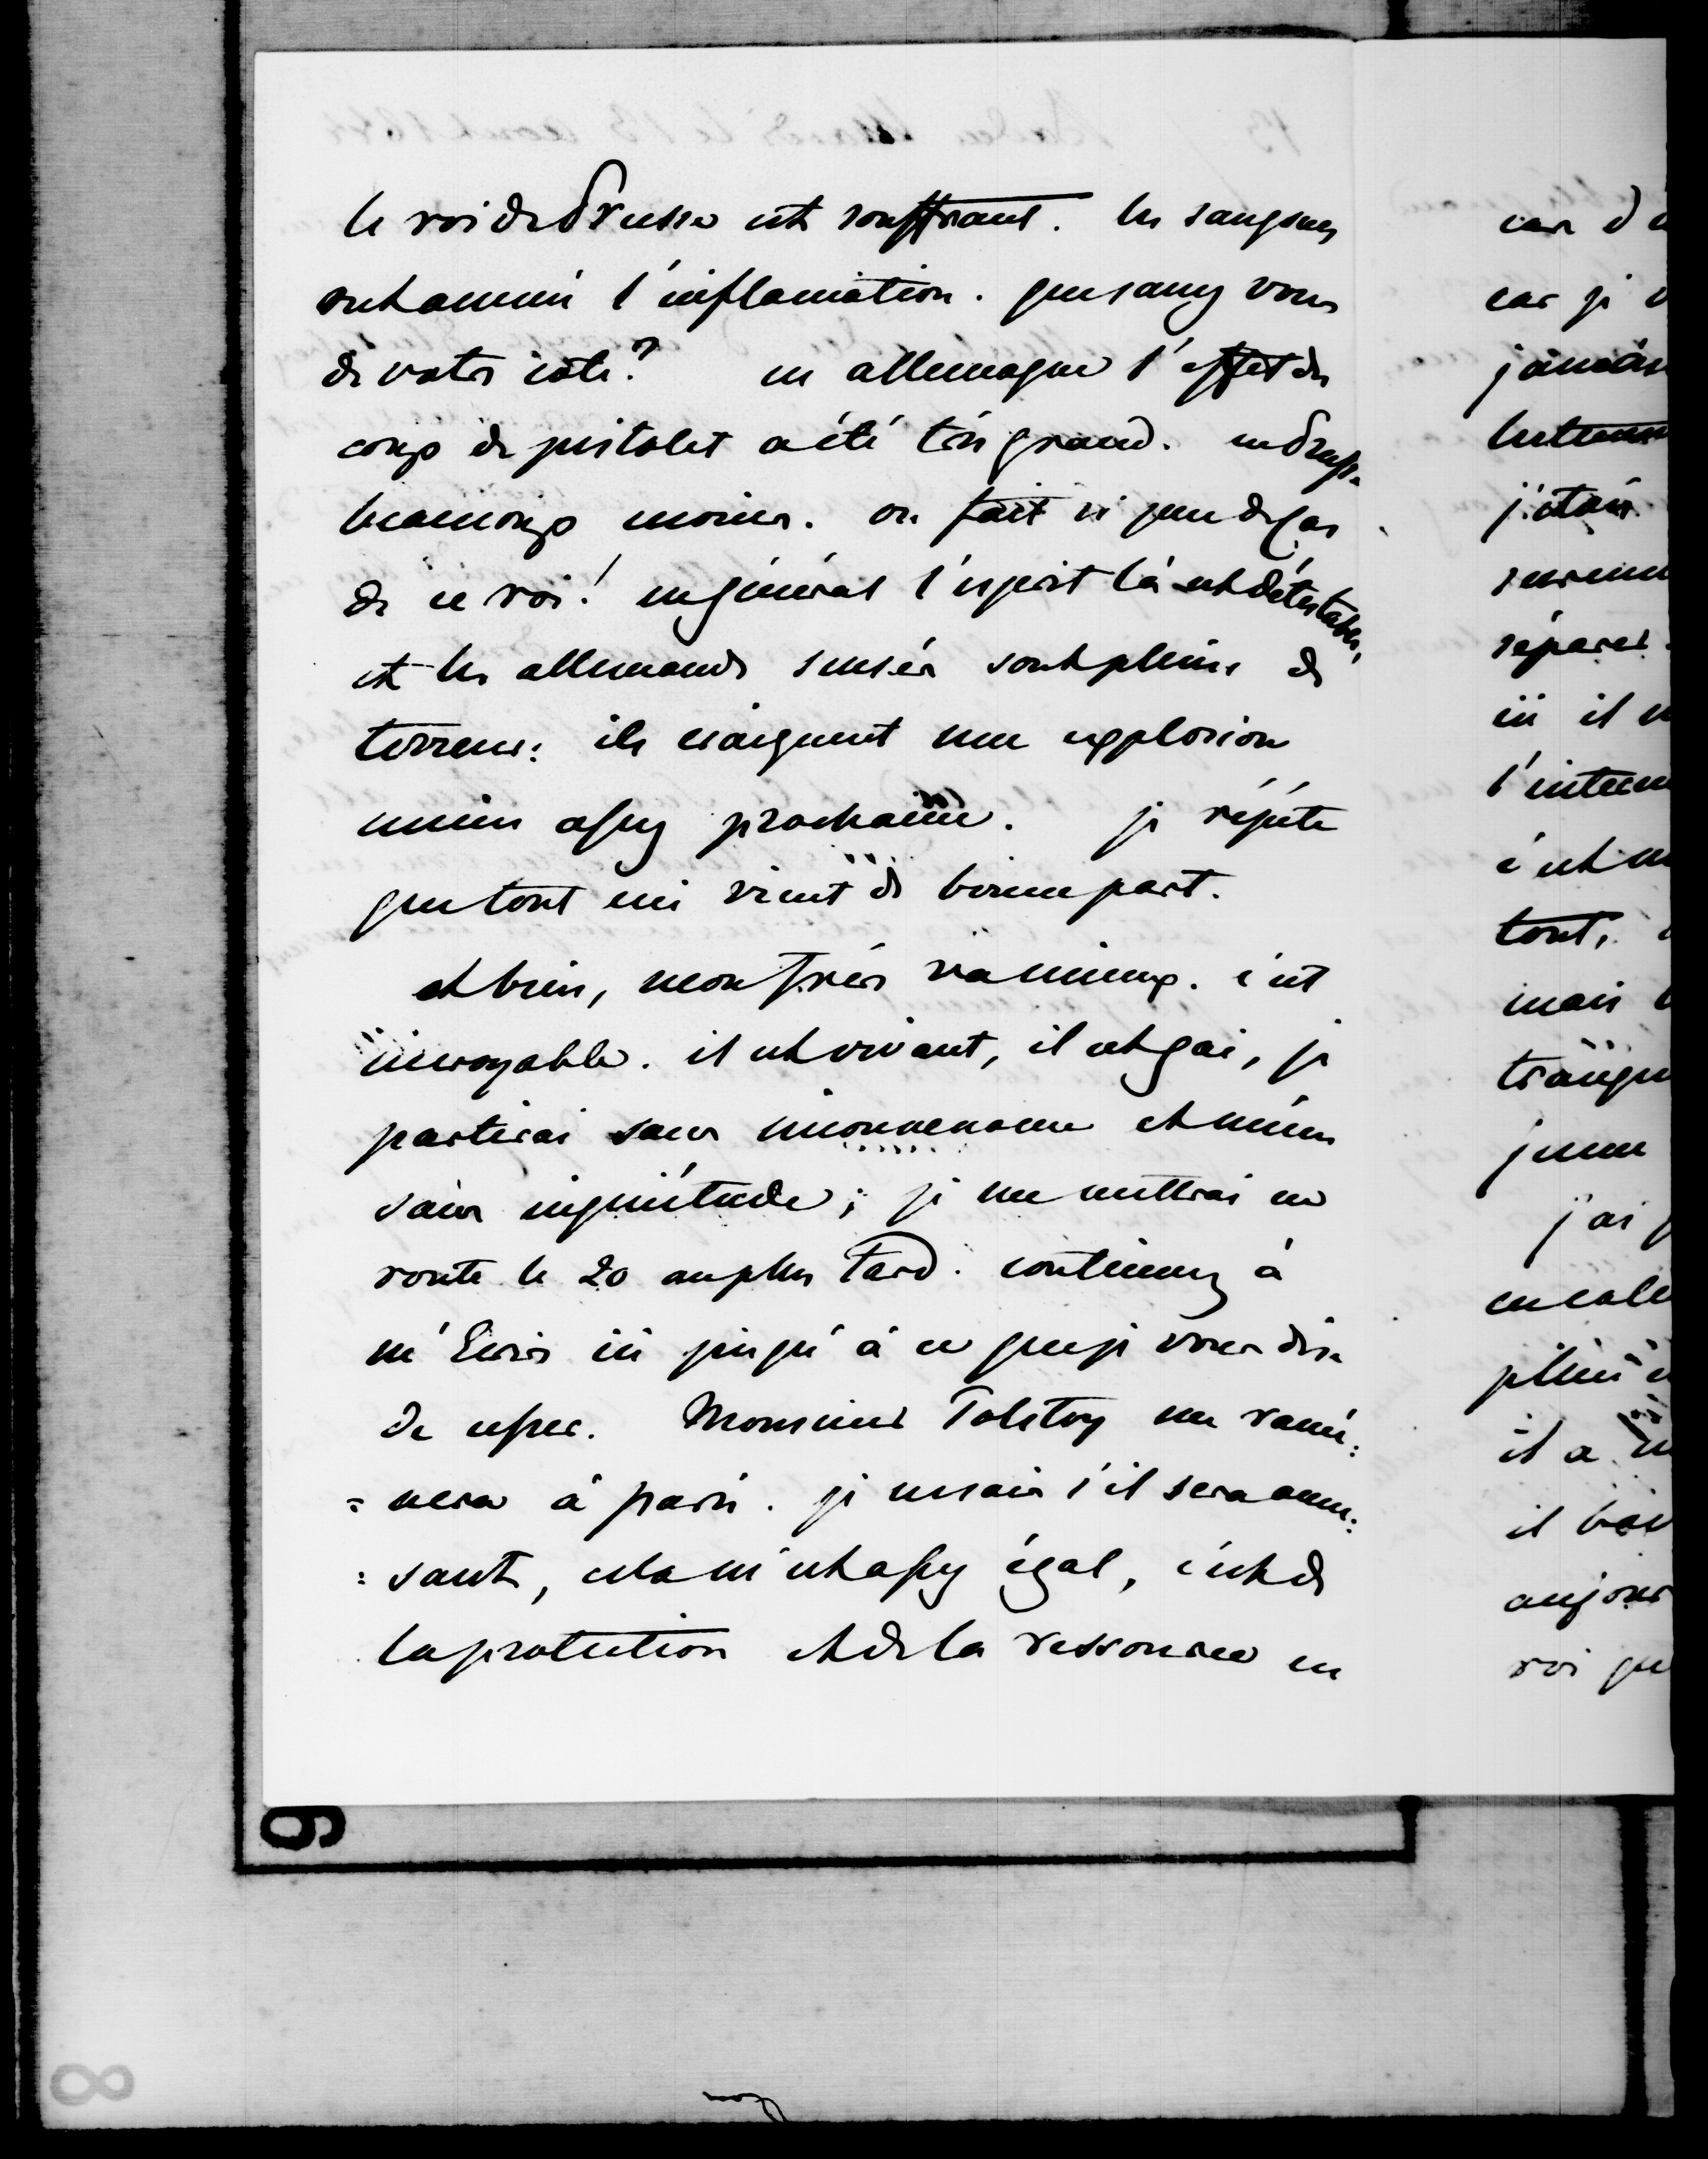 le roi de Prusse est souffrant. les sangsues
ont amené l'inflamation. que savez vous
de votre coté? en allemagne l'effet du
coup de pistolet a été très grand. en Prusse
beaucoup moins. on fait si peu de cas
de ce roi! en général l'esprit là est détestable,
et les allemands sensés sont pleins de
terreur: ils craignent une explosion
même assez prochaine. je répète
que tout ceci vient de bonne part.
et bien, mon frère va mieux. c'est
incroyable. il est vivant, il est gai, je
partirai sans inconvenance et même
sans inquiétude; je me mettrai en
route le 20 au plus tard. continuez à
m'Ecrire ici jusqu'à ce que je vous dise
de cesser. Monsieur Tolstoy me ramè:
=nera à paris. je ne sais s'il sera amu:
:sant, cela m'est assez égal, c'est de
la protection et de la ressource en
car je
jamais
j'étais
séparer
ici il
tout,
mais
j'ai
il a
roi que
6
8